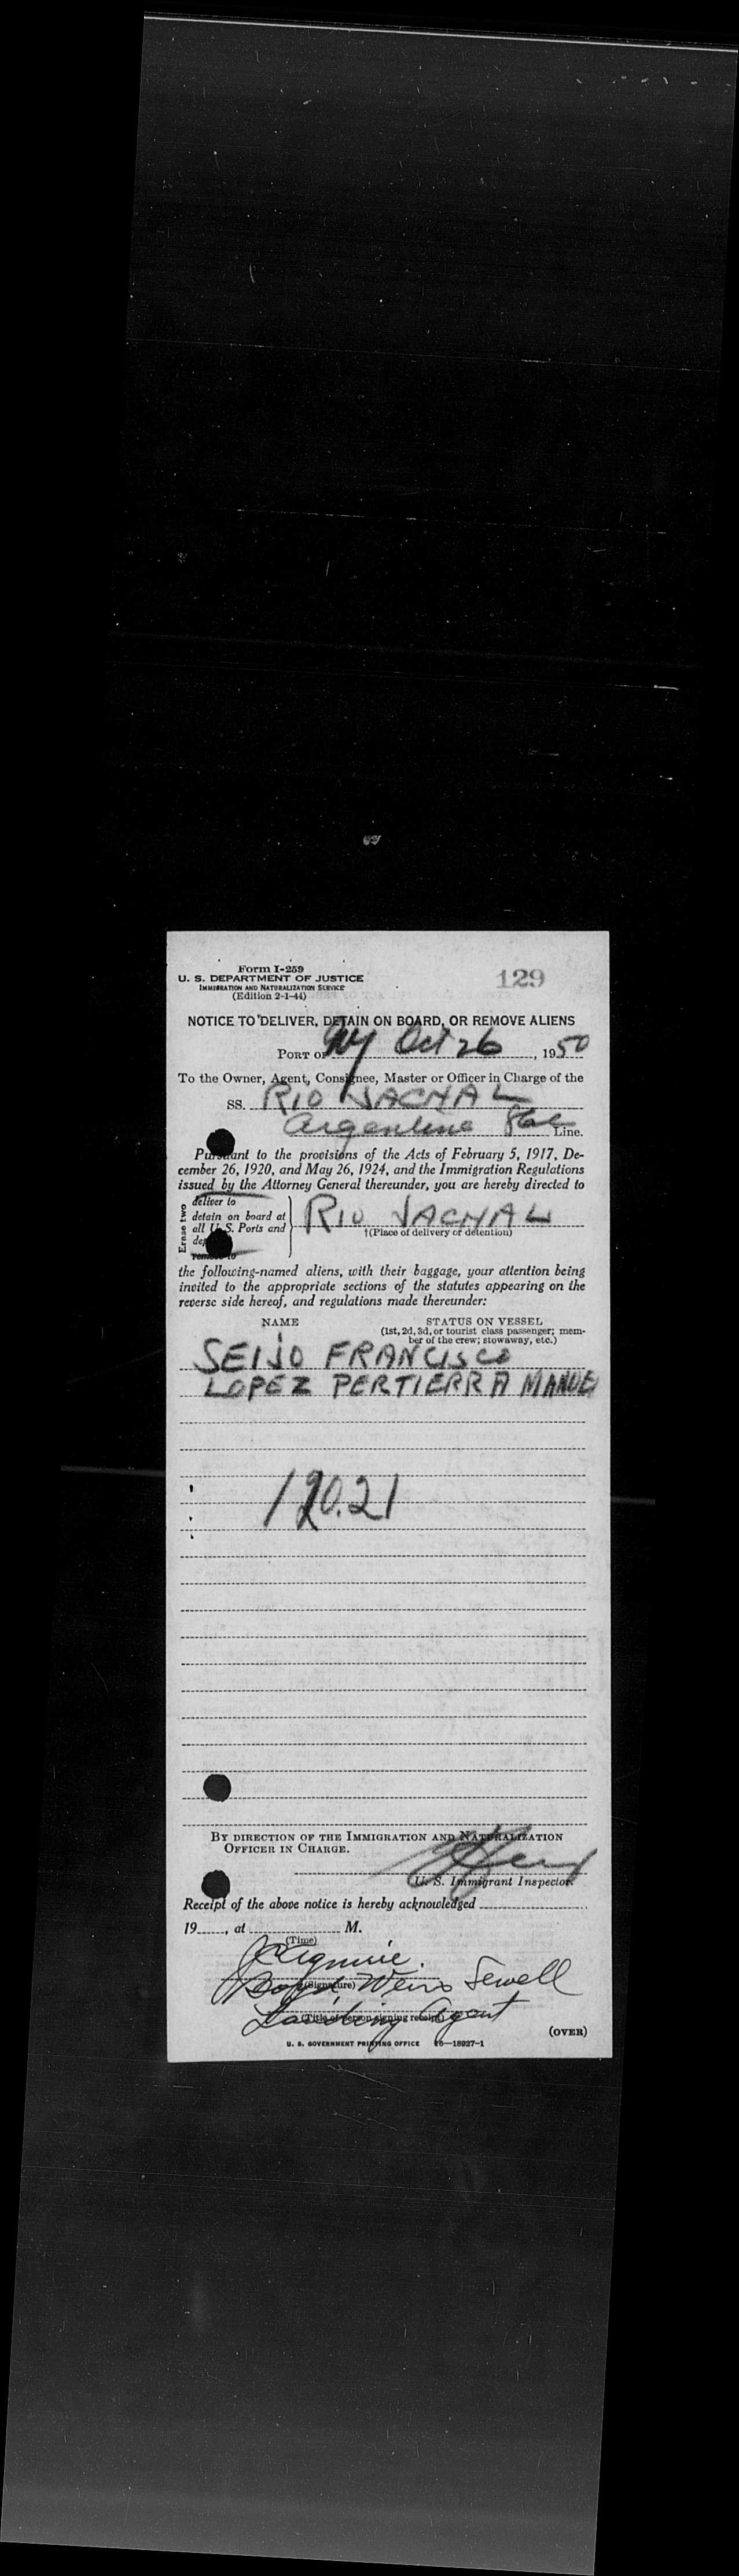 Form I-259
U. S. DEPARTMENT OF JUSTICE
IMMIGRATION AND NATURALIZATION SERVICE
(Edition 2-1-44)
129
NOTICE TO DELIVER, DETAIN ON BOARD, OR REMOVE ALIENS
PORT OF NY Oct 26, 1950
To the Owner, Agent, Consignee, Master or Officer in Charge of the
SS. RIO JACHAL
Argentine State Line.
Pursuant to the provisions of the Acts of February 5, 1917, De-
cember 26, 1920, and May 26, 1924, and the Immigration Regulations
issued by the Attorney General thereunder, you are hereby directed to
Erase two
deliver to
detain on board at
all U. S. Ports and
remove to
RIO JACHAL
†(Place of delivery or detention)
the following-named aliens, with their baggage, your attention being
invited to the appropriate sections of the statutes appearing on the
reverse side hereof, and regulations made thereunder:
NAME
STATUS ON VESSEL
(1st, 2d, 3d, or tourist class passenger; mem-
ber of the crew; stowaway, etc.)
SEIJO FRANCISCO
LOPEZ PERTIERRA MANUEL
120.21
BY DIRECTION OF THE IMMIGRATION AND NATURALIZATION
OFFICER IN CHARGE.
U. S. Immigrant Inspector.
Receipt of the above notice is hereby acknowledged
19___, at ___ M.
(Time)
(Signature)
Boyd, Weir & Sewell
Landing Agent
(Title of person signing receipt)
(OVER)
U. S. GOVERNMENT PRINTING OFFICE 16—18927-1